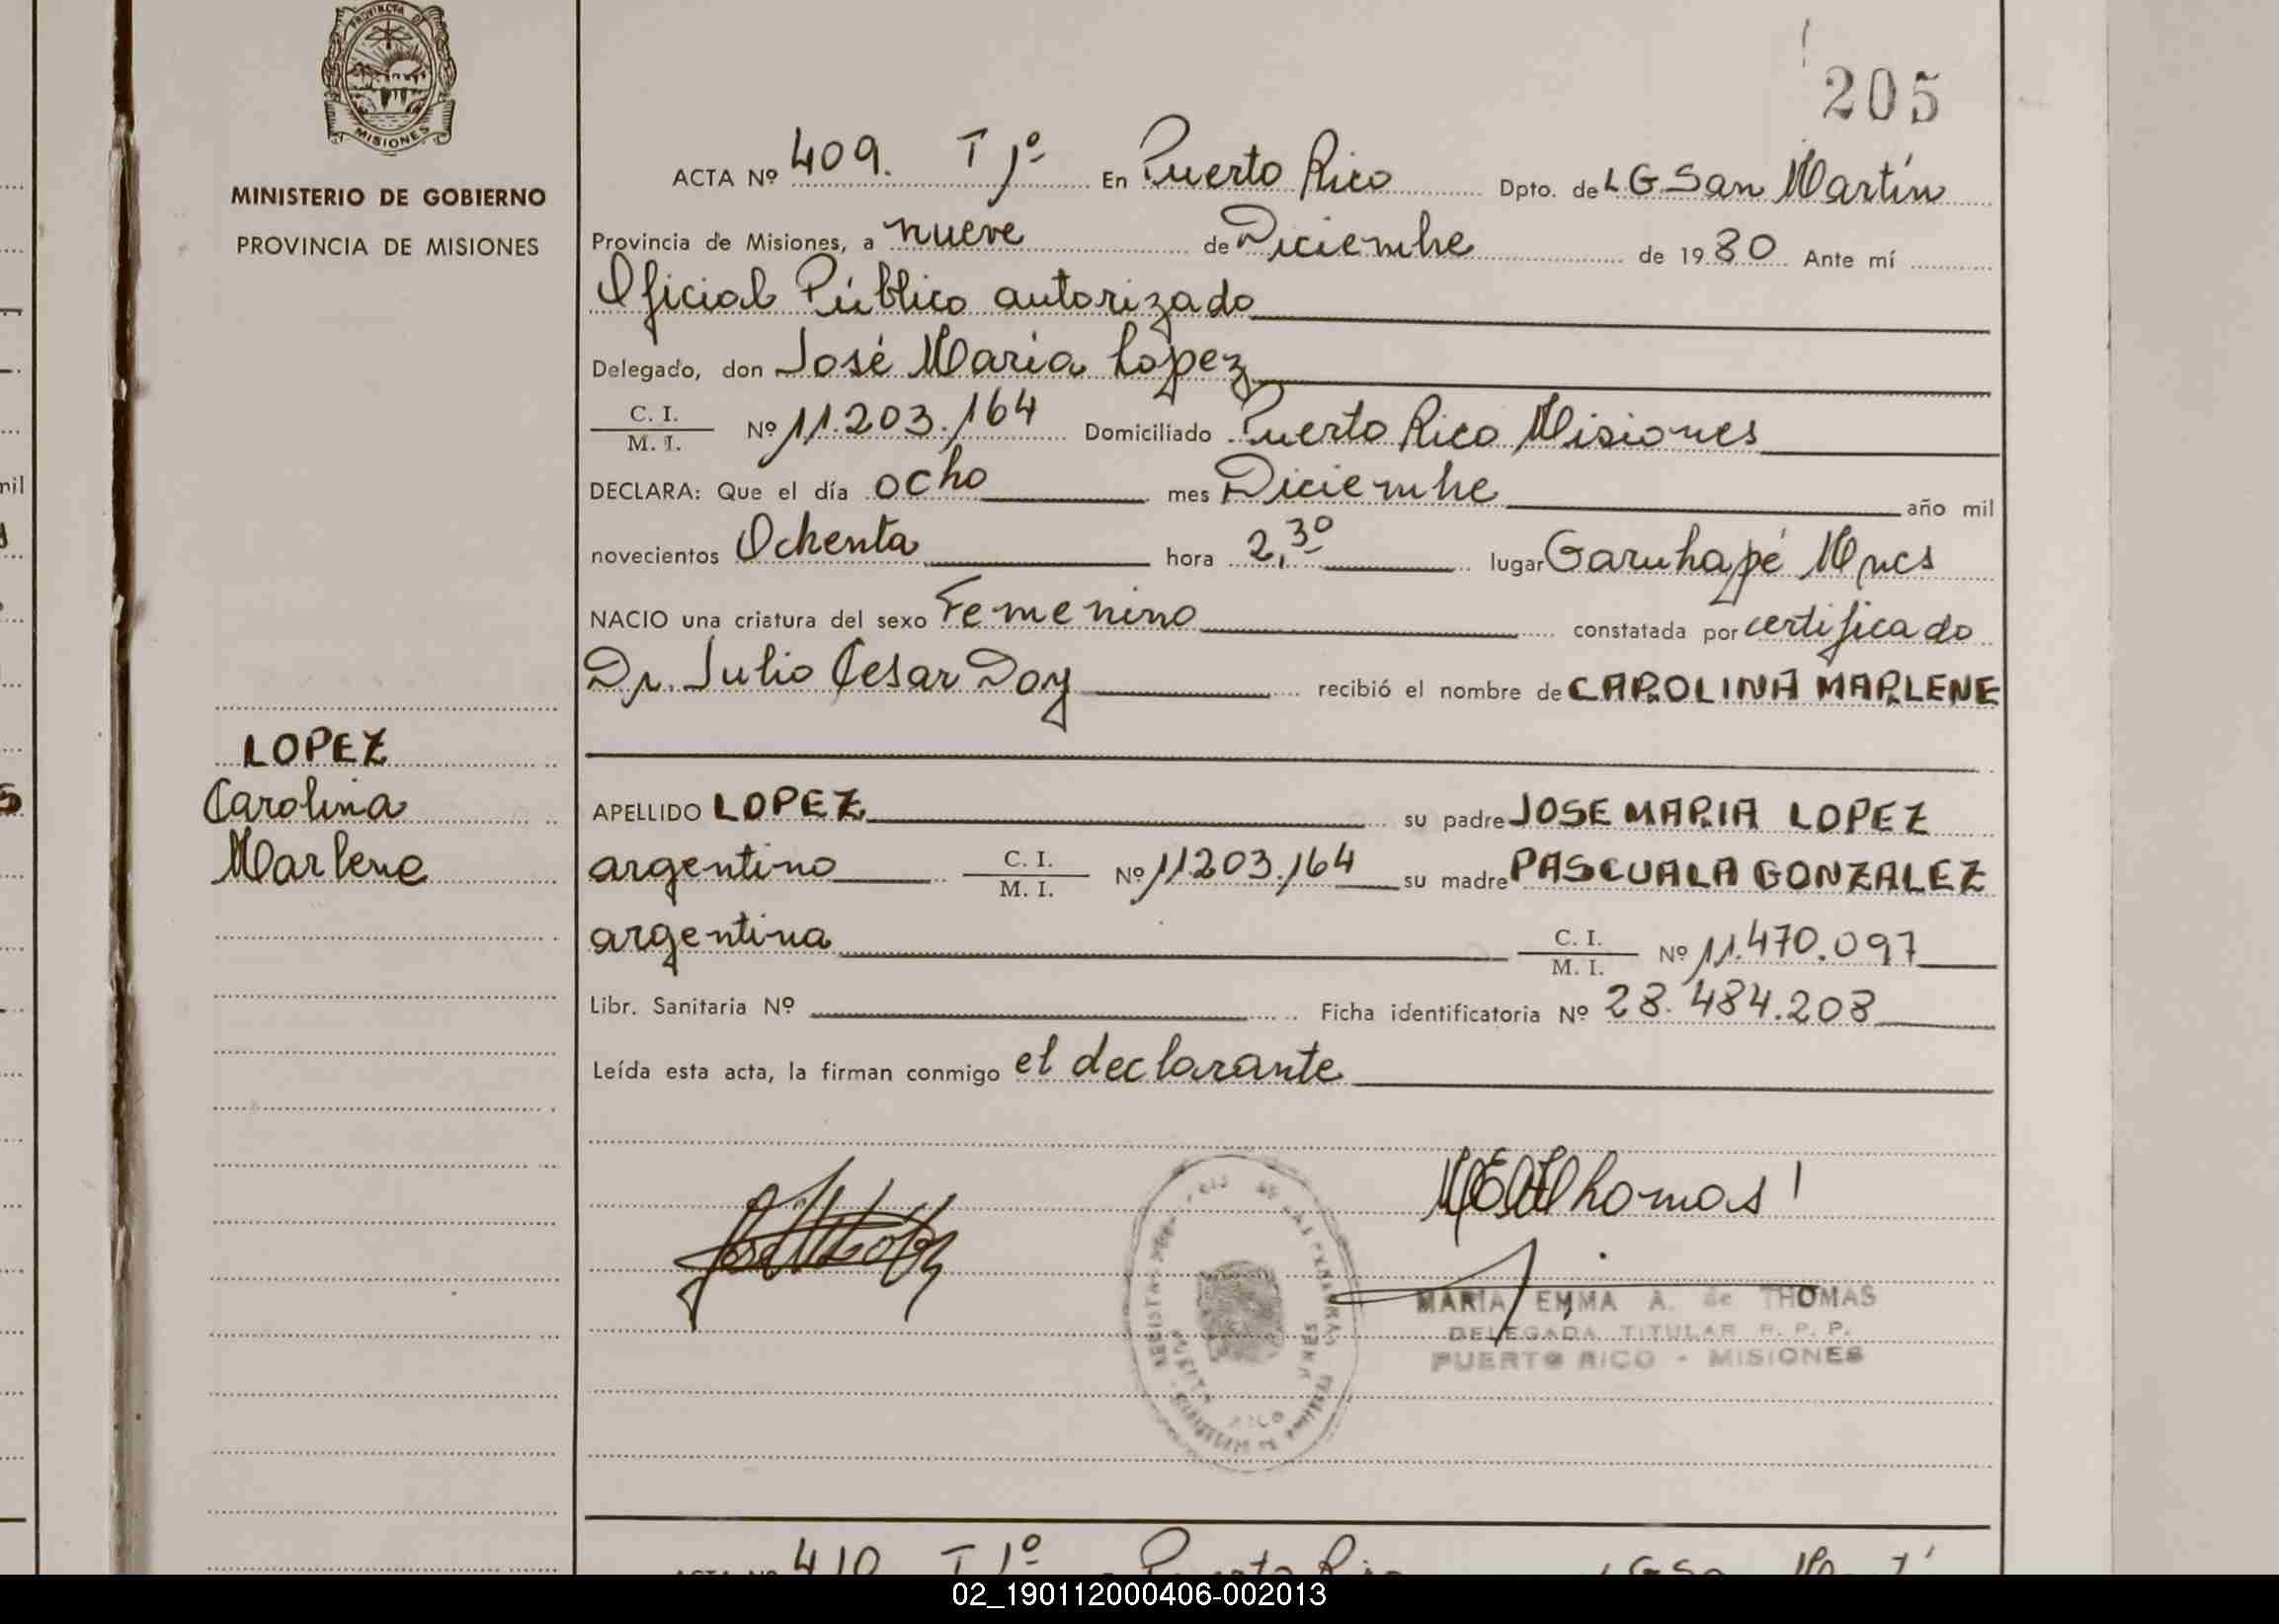 PROVINCIA DE
MISIONES
MINISTERIO DE GOBIERNO
PROVINCIA DE MISIONES
LOPEZ
Carolina
Marlene
205
ACTA Nº 409. T 1º En Puerto Rico Dpto. de L G. San Martín
Provincia de Misiones, a nueve de Diciembre de 1980 Ante mí
Oficial Público autorizado
Delegado, don José Maria Lopez
C. I.
M. I. Nº 11.203.164 Domiciliado Puerto Rico Misiones
DECLARA: Que el día ocho mes Diciembre año mil
novecientos Ochenta hora 2,30 lugar Garuhapé Mnes
NACIO una criatura del sexo Femenino constatada por certificado
Dr. Julio Cesar Doy recibió el nombre de CAROLINA MARLENE
APELLIDO LOPEZ su padre JOSE MARIA LOPEZ
argentino C. I. M. I. Nº 11.203.164 su madre PASCUALA GONZALEZ
argentina C. I. M. I. Nº 11.470.097
Libr. Sanitaria Nº Ficha identificatoria Nº 28.484.208
Leída esta acta, la firman conmigo el declarante
Thomas
MARIA EMMA A. de THOMAS
DELEGADA TITULAR R. P. P.
PUERTO RICO - MISIONES
ACTA Nº 410 T 1º Puerto Rico
02_190112000406-002013